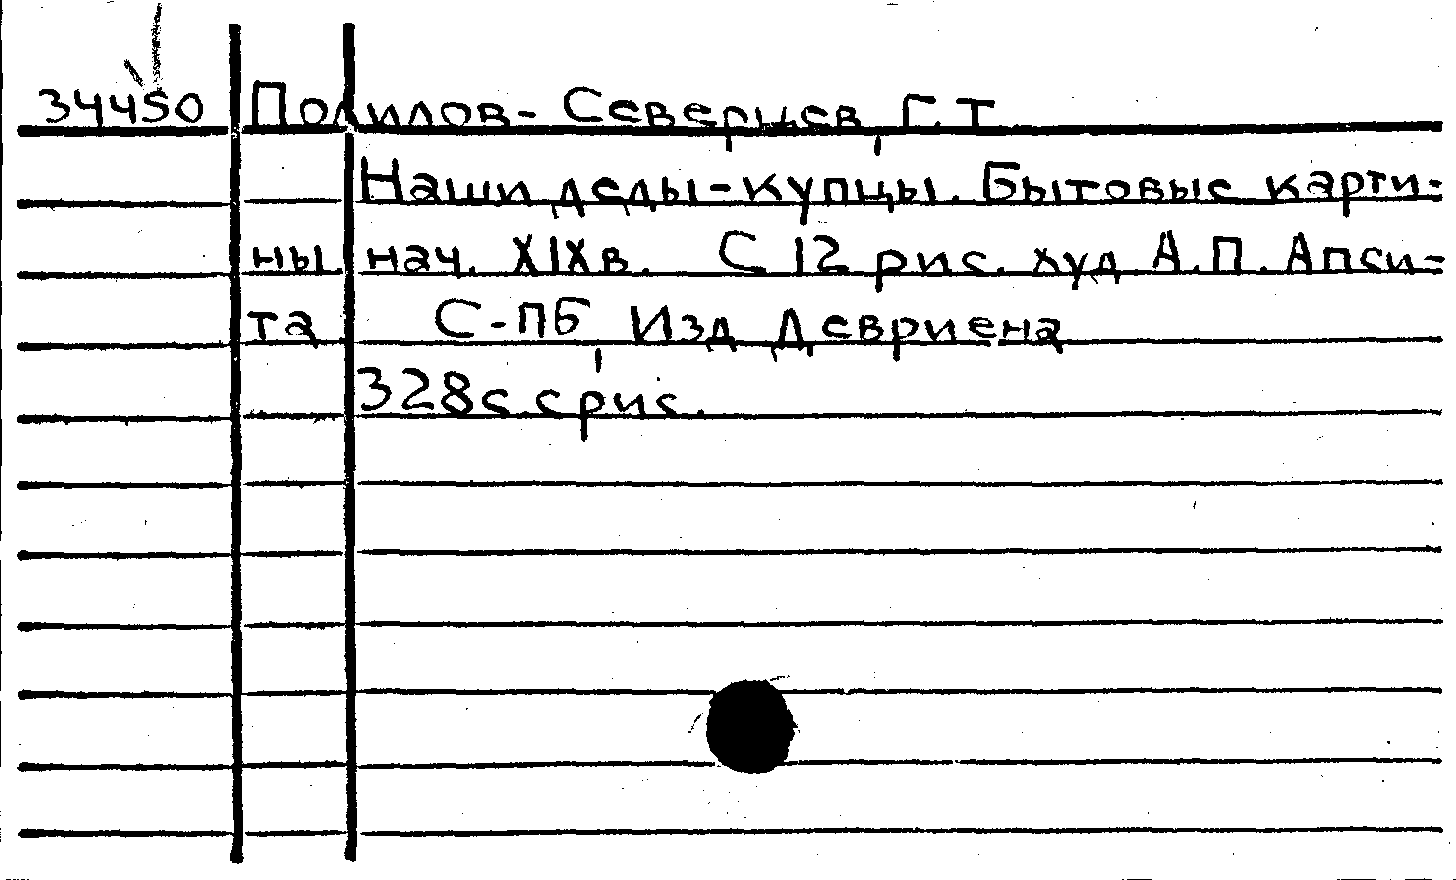 34450 Полилов- Северцев, Г.Т.
Наши деды-купцы. Бытовые карти-
ны нач. XIXв. С 12 рис. худ А.П. Апси-
та С-ПБ, Изд Девриена
328с. с рис.